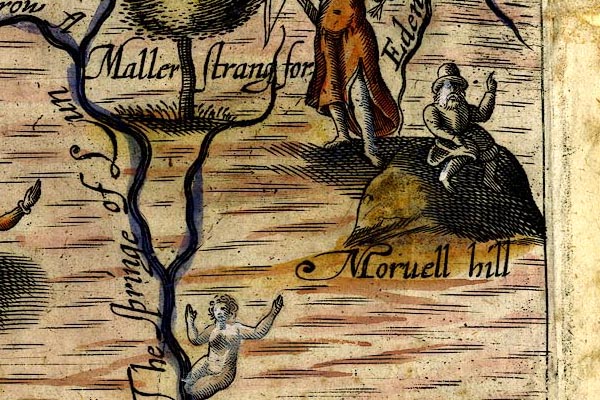 row
Maller strang for
Eden
The springe of Lun
Moruell hill